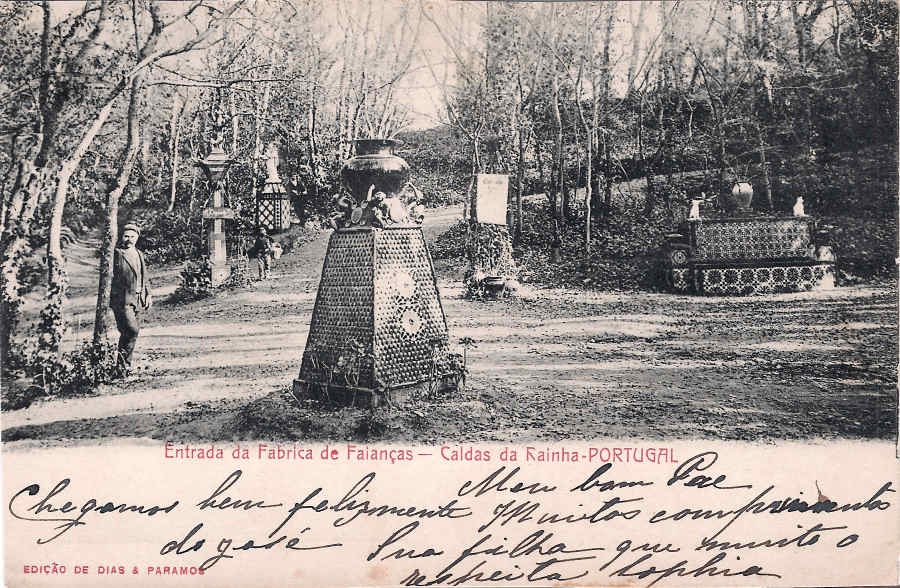 Entrada da Fabrica de Faianças — Caldas da Rainha-PORTUGAL
Meu bam Pae
Chegamos bem felizmente Muitos comprimentos
do José Sua filha que muito o
respeita Sophia
EDIÇÃO DE DIAS & PARAMOS